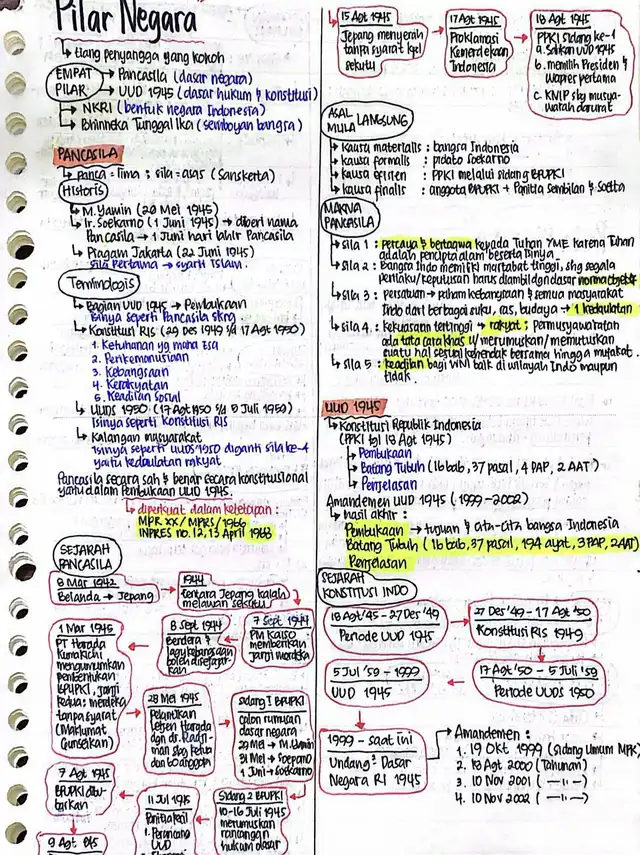 Pilar Negara
↳ tiang penyangga yang kokoh
EMPAT PILAR
→ Pancasila (dasar negara)
→ UUD 1945 (dasar hukum & konstitusi)
→ NKRI (bentuk negara Indonesia)
→ Bhinneka Tunggal Ika (semboyan bangsa)
PANCASILA
↳ panca = lima ; sila = asas (Sanskerta)
Historis
↳ M. Yamin (29 Mei 1945)
↳ Ir. Soekarno (1 Juni 1945) → diberi nama
Pancasila → 1 Juni hari lahir Pancasila
↳ Piagam Jakarta (22 Juni 1945)
sila pertama → syariat Islam.
Terminologis
↳ Bagian UUD 1945 → Pembukaan
Isinya seperti Pancasila skrng
↳ Konstitusi RIS (29 Des 1949 s/d 17 Agt 1950)
1. Ketuhanan yg maha Esa
2. Perikemanusiaan
3. Kebangsaan
4. Kerakyatan
5. Keadilan Sosial
↳ UUDS 1950 (17 Agt 1950 s/d 5 Juli 1959)
Isinya seperti Konstitusi RIS
↳ Kalangan masyarakat
Isinya seperti UUDS 1950 diganti sila ke-4
yaitu kedaulatan rakyat
Pancasila secara sah & benar secara konstitusional
yaitu dalam Pembukaan UUD 1945.
↳ diperkuat dalam ketetapan :
MPR XX/MPRS/1966
INPRES no. 12, 13 April 1968
SEJARAH PANCASILA
8 Mar 1942
Belanda → Jepang
1944
tentara Jepang kalah
melawan sekutu
7 Sept 1944
PM Kaiso
memberikan
janji merdeka
8 Sept 1944
Bendera &
lagu kebangsaan
boleh disejajarkan
1 Mar 1945
PT Harada
Kumakichi
mengumumkan
pembentukan
BPUPKI, janji
kedua : merdeka
tanpa syarat
(Maklumat
Gunseikan)
28 Mei 1945
Pelantikan
Letjen Harada
dan dr. Radji-
man sbg ketua
dan 60 anggota
Sidang I BPUPKI
calon rumusan
dasar negara
29 Mei → M. Yamin
31 Mei → Soepomo
1 Juni → Soekarno
Sidang 2 BPUPKI
10-16 Juli 1945
merumuskan
rancangan
hukum dasar
11 Jul 1945
Panitia Kecil
1. Perancang
UUD
7 Agt 1945
BPUPKI dibu-
barkan
9 Agt 1945
15 Agt 1945
Jepang menyerah
tanpa syarat kpd
sekutu
17 Agt 1945
Proklamasi
Kemerdekaan
Indonesia
18 Agt 1945
PPKI sidang ke-1
a. Sahkan UUD 1945
b. memilih Presiden &
Wapres pertama
c. KNIP sbg musya-
warah darurat
ASAL MULA LANGSUNG
↳ Kausa materialis : bangsa Indonesia
↳ kausa formalis : pidato Soekarno
↳ kausa efisien : PPKI melalui sidang BPUPKI
↳ kausa finalis : anggota BPUPKI + Panitia Sembilan & Soetta
MAKNA PANCASILA
↳ sila 1 : percaya & bertaqwa kepada Tuhan YME karena Tuhan
adalah pencipta alam beserta isinya.
↳ sila 2 : Bangsa Indo memiliki martabat tinggi, shg segala
perilaku/keputusan harus diambil dgn dasar norma objektif
↳ sila 3 : persatuan → paham kebangsaan & semua masyarakat
Indo dari berbagai suku, ras, budaya → 1 kedaulatan
↳ sila 4 : kekuasaan tertinggi → rakyat ; permusyawaratan
ada tata cara khas u/ merumuskan/memutuskan
suatu hal sesuai kehendak bersama hingga mufakat.
↳ sila 5 : keadilan bagi WNI baik di wilayah Indo maupun
tidak.
UUD 1945
↳ Konstitusi Republik Indonesia
(PPKI tgl 18 Agt 1945)
↳ Pembukaan
↳ Batang Tubuh (16 bab, 37 pasal, 4 PAP, 2 AAT)
↳ Penjelasan
Amandemen UUD 1945 (1999-2002)
↳ hasil akhir :
Pembukaan → tujuan & cita-cita bangsa Indonesia
Batang Tubuh (16 bab, 37 pasal, 194 ayat, 3 PAP, 2 AAT)
Penjelasan
SEJARAH KONSTITUSI INDO
18 Agt '45 - 27 Des '49
Periode UUD 1945
27 Des '49 - 17 Agt '50
Konstitusi RIS 1949
17 Agt '50 - 5 Juli '59
Periode UUDS 1950
5 Jul '59 - 1999
UUD 1945
1999 - saat ini
Undang² Dasar
Negara RI 1945
Amandemen :
1. 19 Okt 1999 (Sidang Umum MPR)
2. 18 Agt 2000 (Tahunan)
3. 10 Nov 2001 ( —"— )
4. 10 Nov 2002 ( —"— )